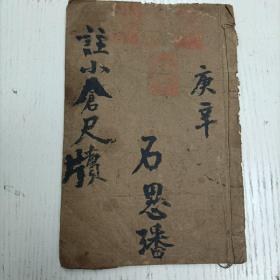 庚辛
石恩璠
註小倉尺牘